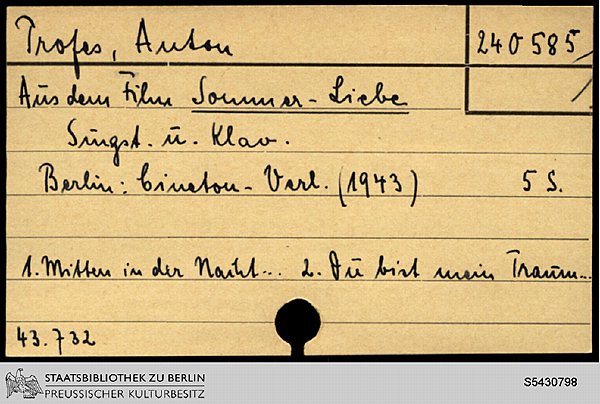 Profes, Anton
240585
Aus dem Film Sommer-Liebe
Singst. u. Klav.
Berlin: Cineton-Verl. (1943) 5 S.
1. Mitten in der Nacht... 2. Du bist mein Traum...
43.732
STAATSBIBLIOTHEK ZU BERLIN
PREUSSISCHER KULTURBESITZ
S5430798